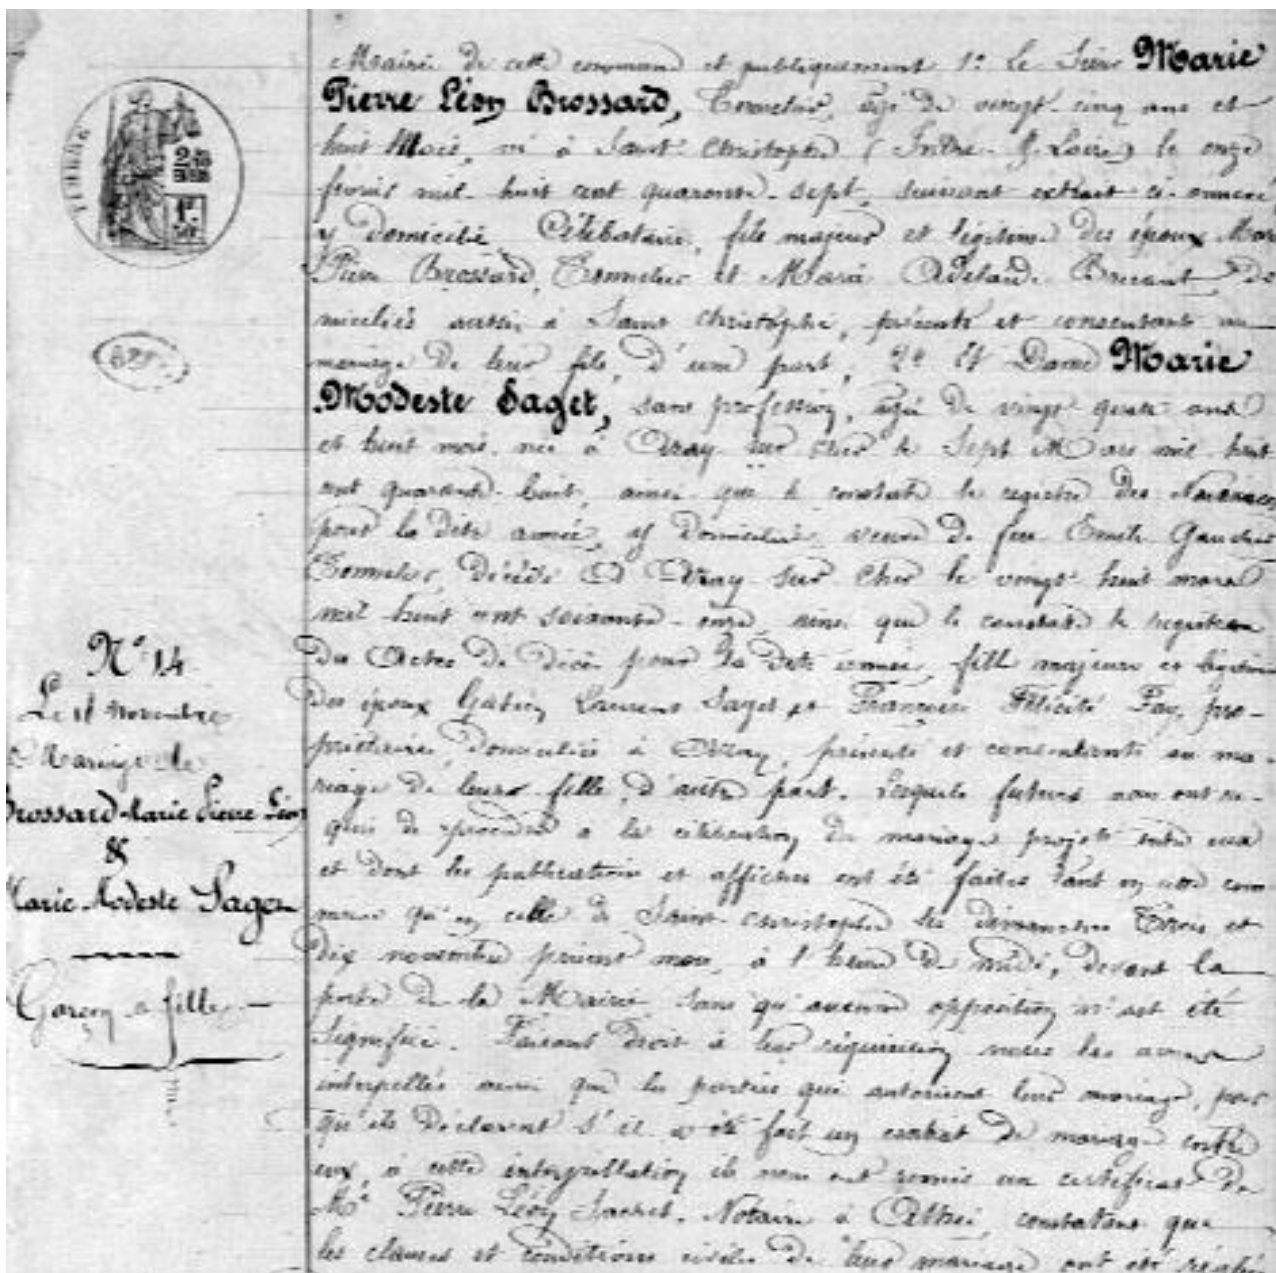 Mairie de cette commune et publiquement 1º Le Sieur Marie
Pierre Léon Brossard, Tonnelier, agé de vingt-cinq ans et
huit Mois, né à Saint-Christophe (Indre-&-Loire) le onze
mil-huit cent quarante-sept, suivant extrait ci-annexé
y domicilié, Célibataire, fils majeur et légitime des époux Mar
Pierre Brossard, Tonnelier et Marie Adélaide do
miciliés aussi à Saint Christophe, présents et consentants au
mariage de leur fils, d'une part, 2º Et Dame Marie
Modeste Saget, sans profession, agée de vingt-quatre ans
et huit mois, née à sur Cher le Sept Mars mil-huit
cent quarante-huit, ainsi que le constate le registre des Naissances
pour la dite année, y domiciliée, veuve de feu Emile
Tonnelier, décédé à sur Cher le vingt-huit mars
mil huit cent soixante-onze, ainsi que le constate le registre
des Actes de Décès pour la dite année, fille majeure et légitime
des époux Gatien Laurent Saget et Françoise Félicité Fay, pro-
priétaires, domiciliés à présents et consentants au ma-
riage de leur fille, d'autre part. Lesquels futurs nous ont re-
quis de procéder à la célébration du mariage projeté entre eux
et dont les publications et affiches ont été faites tant en cette com-
mune qu'en celle de Saint-Christophe les dimanches Trois et
Dix novembre présent mois, à l'heure de midi, devant la
porte de la Mairie sans qu'aucune opposition n'ait été
signifiée. Faisant droit à leur réquisition nous les avons
interpellés ainsi que les parties qui autorisent leur mariage, pour
qu'ils déclarent s'il a été fait un contrat de mariage entre
eux, à cette interpellation ils nous ont remis un certificat de
Me Pierre Léon Notaire à constatant que
les clauses et conditions civiles de leur mariage ont été
Nº 14
Le 18 novembre
Mariage de
Brossard Marie Pierre Léon
&
Marie Modeste Saget
Garçon & fille